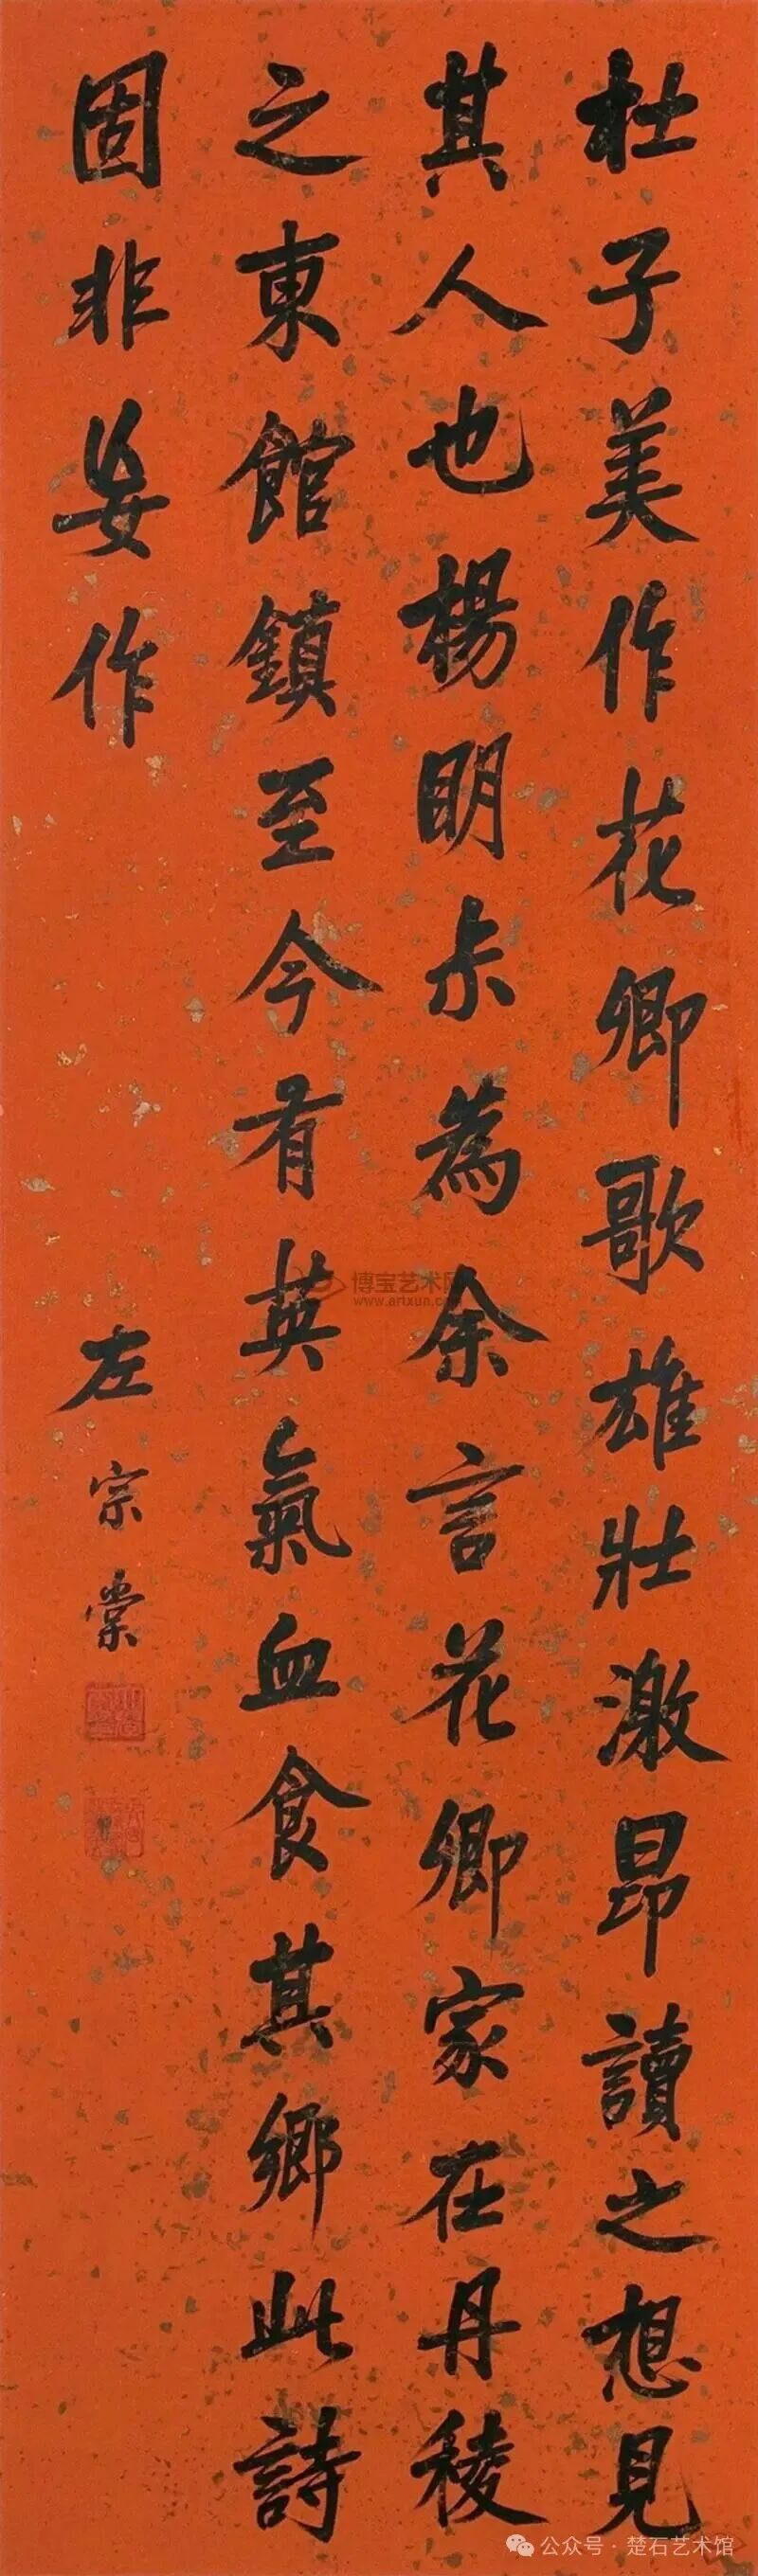 杜子美作花卿歌雄壯激昂讀之想見
其人也楊明尗為余言花卿家在丹稜
之東館鎮至今有英氣血食其鄉此詩
固非妄作
左宗棠
博宝艺术网
www.artxun.com
公众号 · 楚石艺术馆